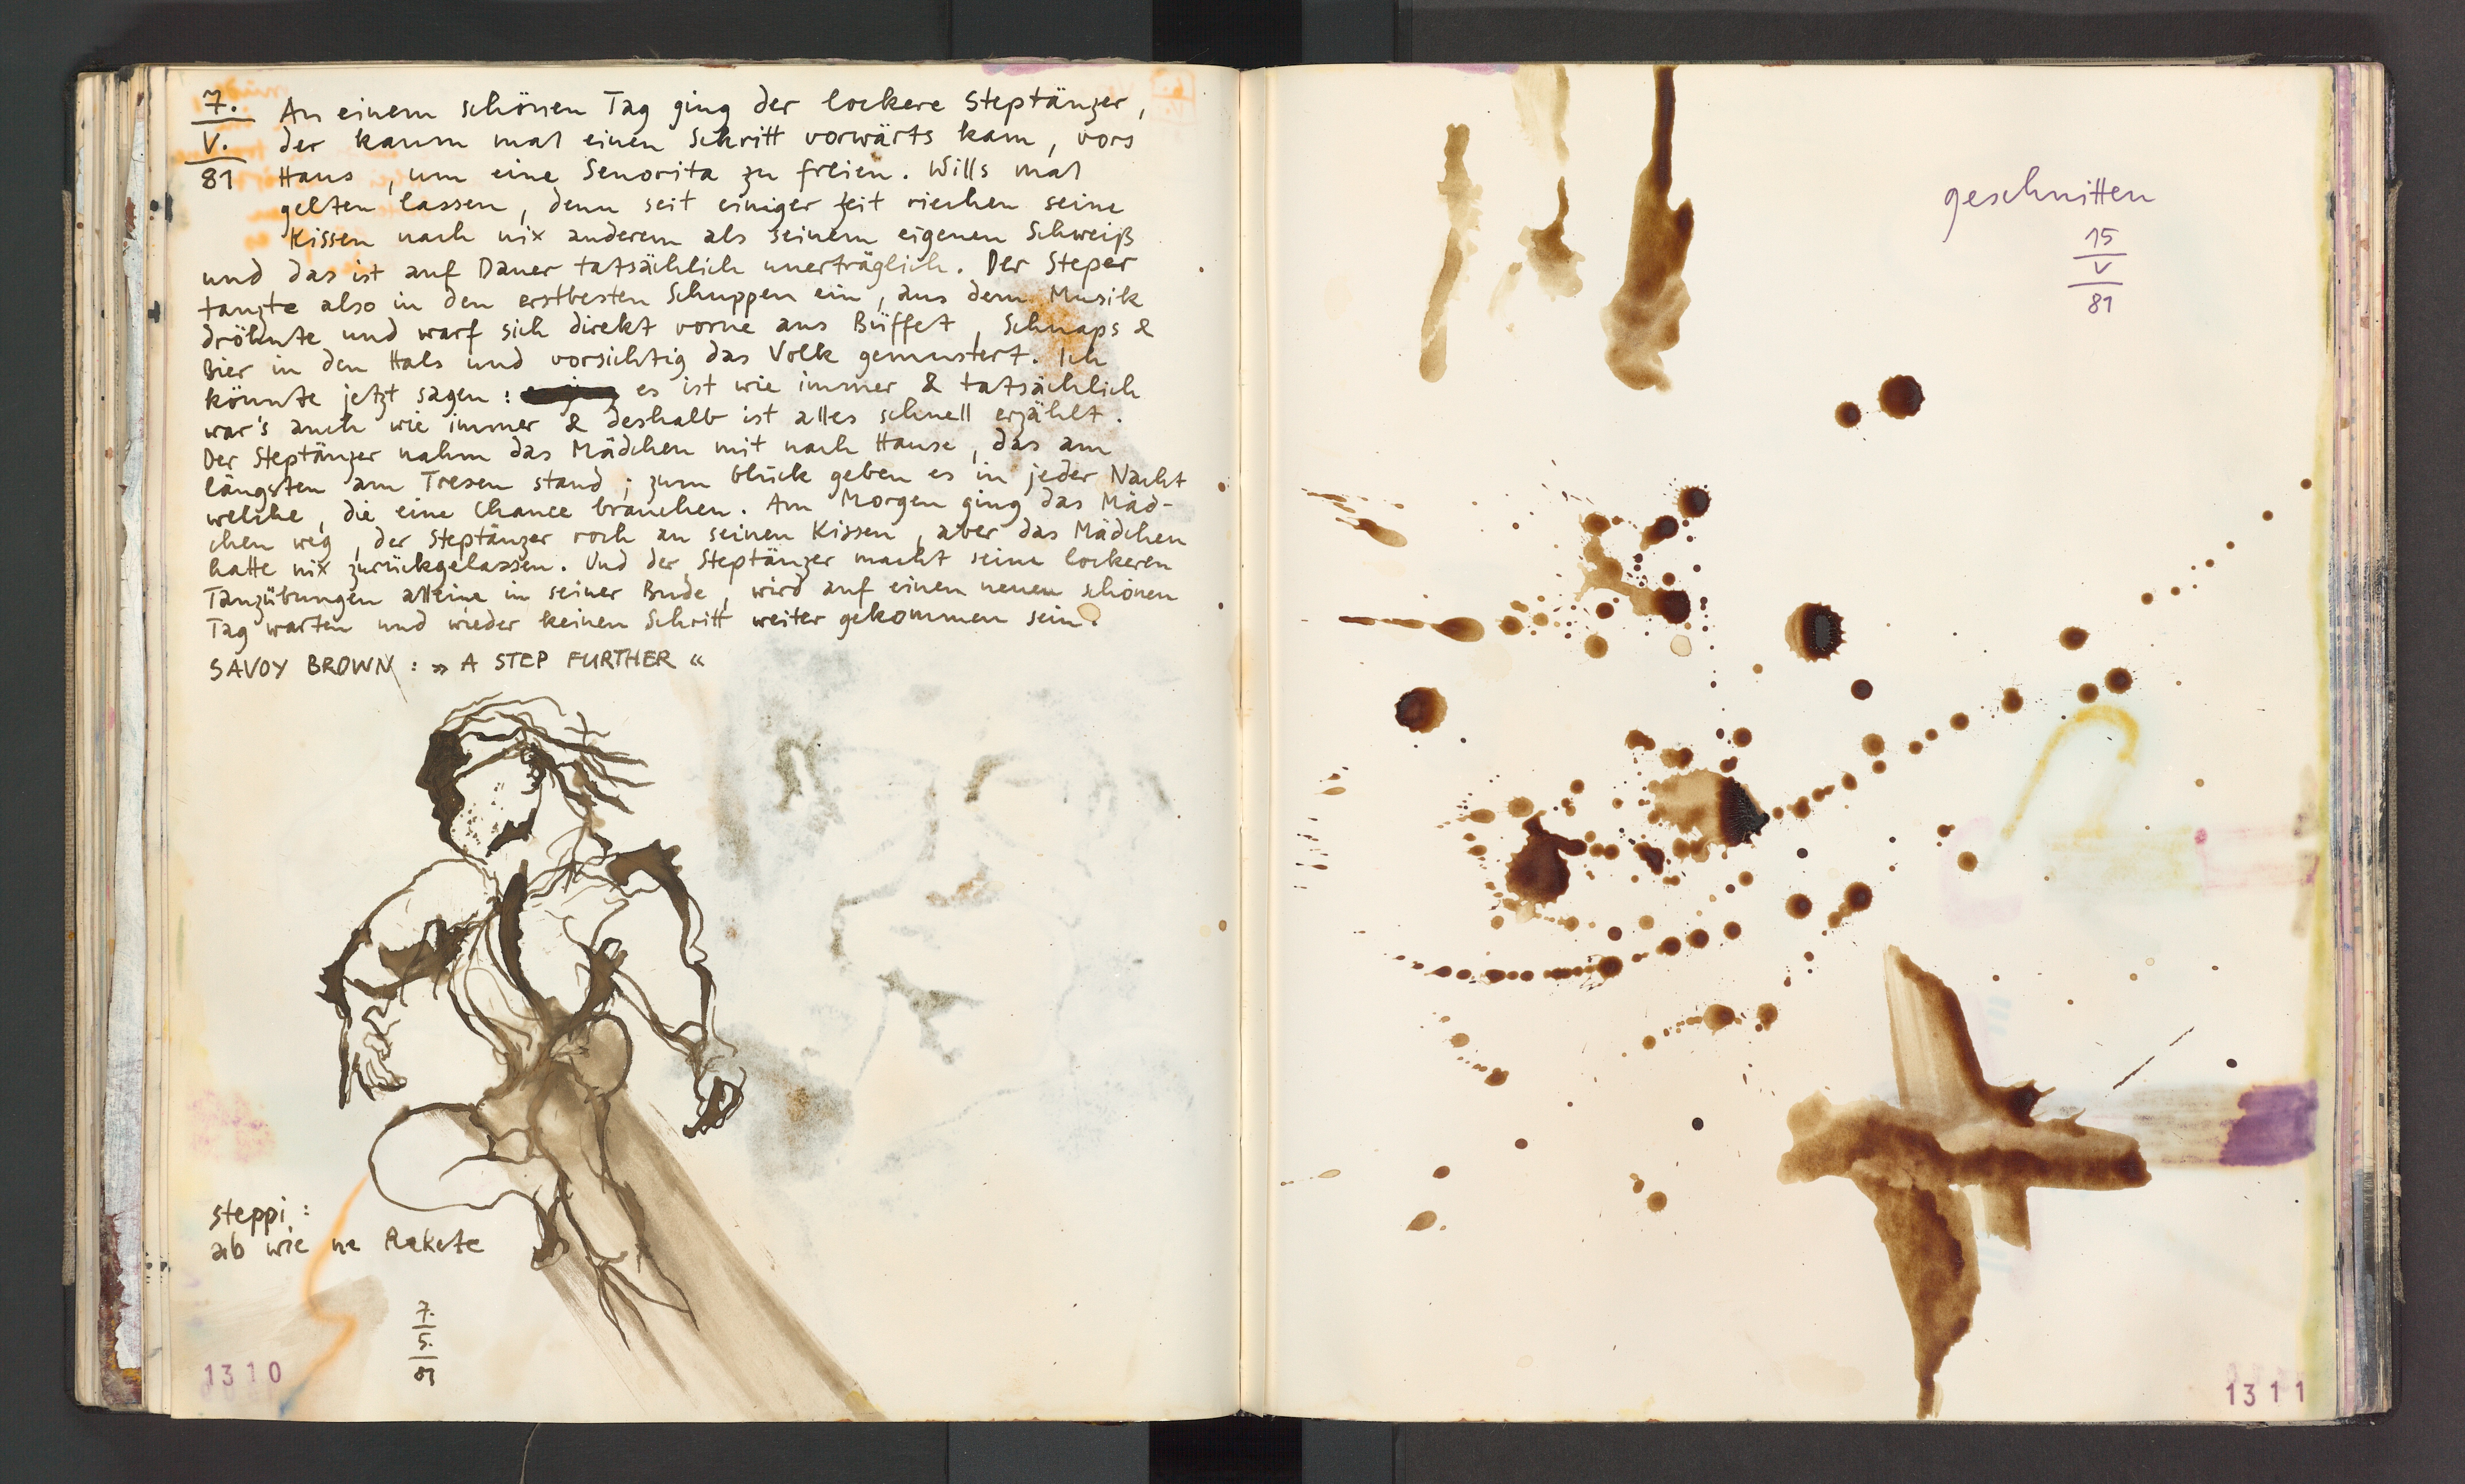 7.
V.
81
An einem schönen Tag ging der lockere Steptänzer,
der kaum mal einen Schritt vorwärts kam, vors
Haus, um eine Senorita zu freien. Wills mal
gelten lassen, denn seit einiger Zeit riechen seine
Kissen nach nix anderem als seinem eigenen Schweiß
und das ist auf Dauer tatsächlich unerträglich. Der Steper
tanzte also in den erstbesten Schuppen ein, aus dem Musik
dröhnte und warf sich direkt vorne ans Büffet, Schnaps &
Bier in den Hals und vorsichtig das Volk gemustert. Ich
könnte jetzt sagen: es ist wie immer & tatsächlich
war's auch wie immer & deshalb ist alles schnell erzählt.
Der Steptänzer nahm das Mädchen mit nach Hause, das am
längsten am Tresen stand; zum Glück geben es in jeder Nacht
welche, die eine Chance brauchen. Am Morgen ging das Mäd-
chen weg, der Steptänzer roch an seinen Kissen, aber das Mädchen
hatte nix zurückgelassen. Und der Steptänzer macht seine lockeren
Tanzübungen alleine in seiner Bude, wird auf einen neuen schönen
Tag warten und wieder keinen Schritt weiter gekommen sein.
SAVOY BROWN: » A STEP FURTHER «
steppi:
ab wie ne Rakete
7.
5.
81
1310
geschnitten
15
V
81
1311